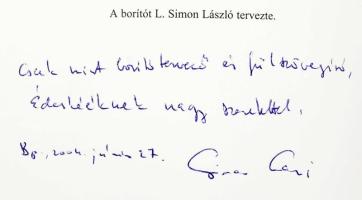 A borítót L. Simon László tervezte.
Csak mint borítótervező és fülszövegíró,
Édeslééknek nagy szeretettel,
Bp., 2004. június 27. Simon Laci